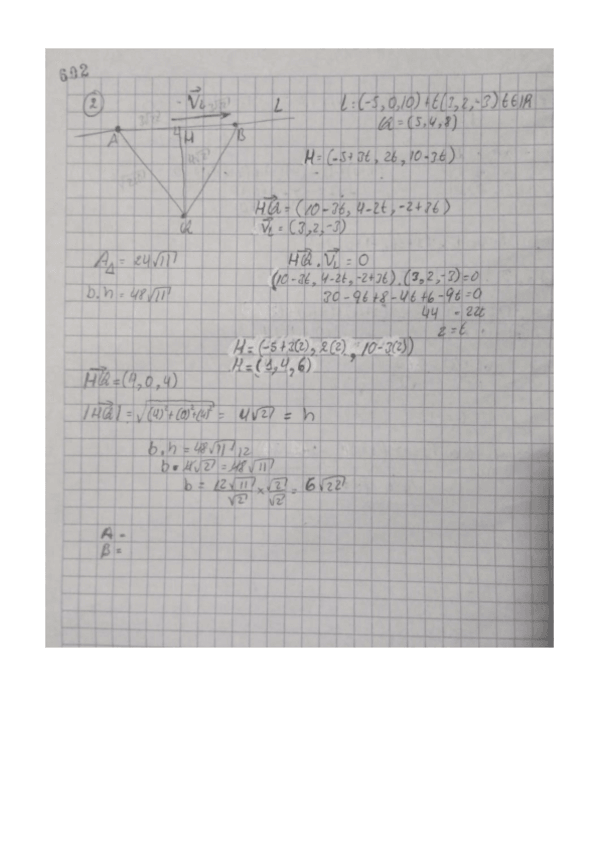 692
② V⃗L L
A H B
Q
L=(-5,0,10)+t(3,2,-3) t∈IR
Q=(5,4,8)
H=(-5+3t, 2t, 10-3t)
HQ⃗=(10-3t, 4-2t, -2+3t)
V⃗L=(3,2,-3)
A△ = 24√11
HQ⃗ . V⃗L = 0
(10-3t, 4-2t, -2+3t).(3,2,-3)=0
b.h = 48√11
30-9t+8-4t+6-9t=0
44 = 22t
2=t
H=(-5+3(2), 2(2), 10-3(2))
H=(1,4,4)
HQ⃗=(4,0,4)
|HQ⃗| = √(4)²+(0)²+(4)² = 4√2 = h
b.h = 48√11
b.4√2 = 48√11 12
b = 12√11/√2 × √2/√2 = 6√22
A =
B =